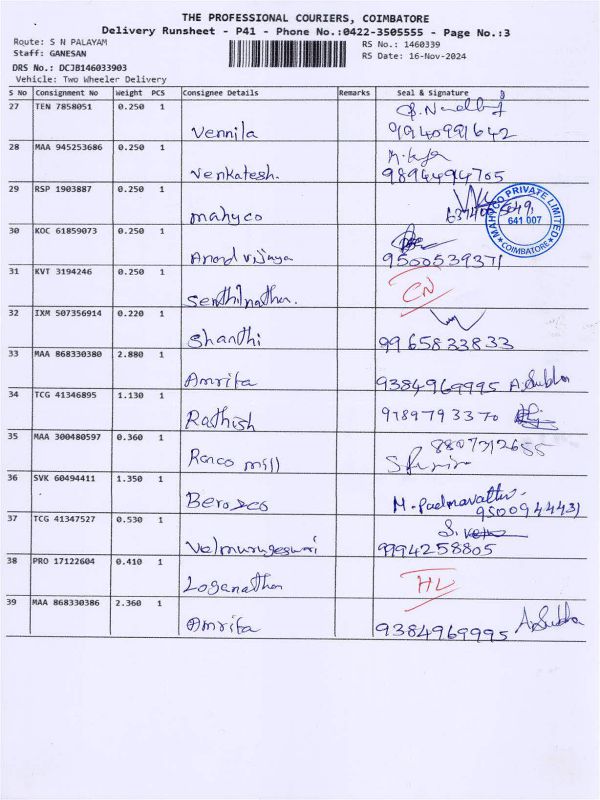 THE PROFESSIONAL COURIERS, COIMBATORE
Delivery Runsheet - P41 - Phone No.:0422-3505555 - Page No.:3
Route: S N PALAYAM
RS No.: 1460339
Staff: GANESAN
RS Date: 16-Nov-2024
DRS No.: DCJB146033903
Vehicle: Two Wheeler Delivery
S No Consignment No Weight PCS Consignee Details Remarks Seal & Signature
27 TEN 7858051 0.250 1 Vennila 9940991642
28 MAA 945253686 0.250 1 Venkatesh. 9894494705
29 RSP 1903887 0.250 1 mahyco
MAHYCO PRIVATE LIMITED 641 007 COIMBATORE
30 KOC 61859073 0.250 1 Anand vijaya 9500539371
31 KVT 3194246 0.250 1 Senthilnathan. CN
32 IXM 507356914 0.220 1 Shanthi 9965833833
33 MAA 868330380 2.880 1 Amrita 9384969995 A.Subha
34 TCG 41346895 1.130 1 Rathish 9789793370
35 MAA 300480597 0.360 1 Ranco mill 8807312655
36 SVK 60494411 1.350 1 Berosco M. Padmavathi 9500944431
37 TCG 41347527 0.530 1 Velmurugeswari 9994258805
38 PRO 17122604 0.410 1 Loganathan HL
39 MAA 868330386 2.360 1 Amrita 9384969995 A.Subha